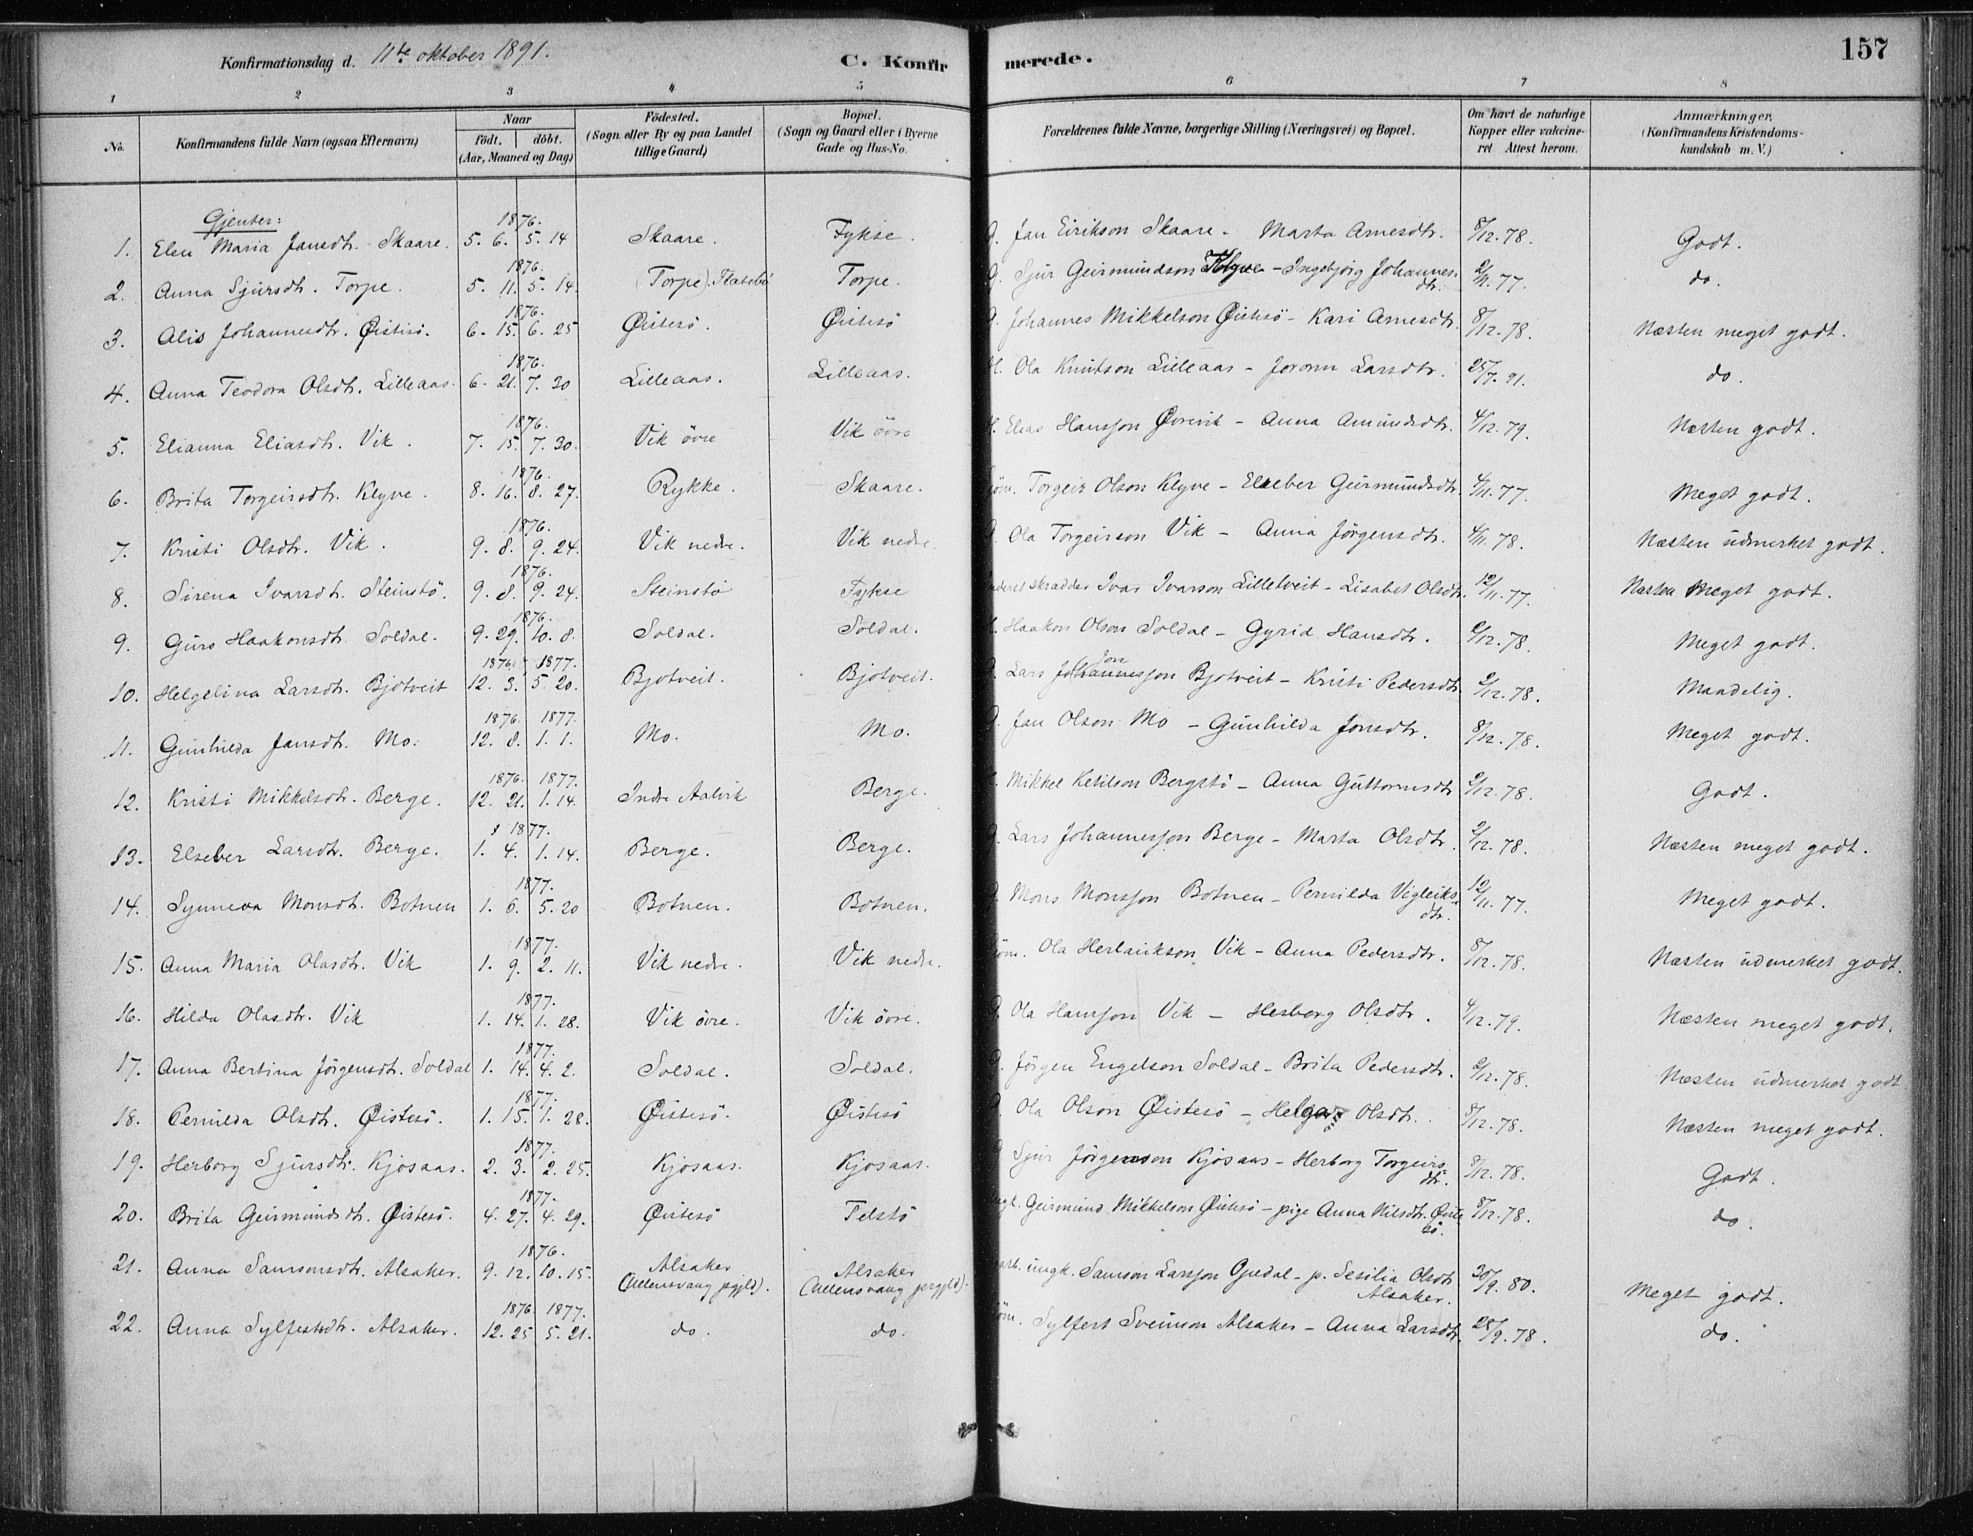 Konfirmationsdag d. 11te oktober 1891. C. Konfirmerede. 157
1 2 3 4 5 6 7 8
No. Konfirmandens fulde Navn (ogsaa Efternavn) Naar födt. döbt. (Aar, Maaned og Dag) Födested. (Sogn eller By og paa Landet tillige Gaard) Bopæl. (Sogn og Gaard eller i Byerne Gade og Hus-No. Forældrenes fulde Navne, borgerlige Stilling (Næringsvei) og Bopæl. Om havt de naturlige Kopper eller vakcineret Attest herom. Anmærkninger. (Konfirmandens Kristendomskundskab m. V.)
Gjenter:
1. Elen Maria Jansdtr. Skaare. 1876. 5. 6. 5. 14 Skaare. Fykse. G. Jan Eirikson Skaare - Marta Arnesdtr. 8/12. 78. Godt.
2. Anna Sjursdtr. Torpe. 1876. 5. 11. 5. 14. (Torpe) Torpe. G. Sjur Geirmundson - Ingebjörg Johannesdtr. 2/11. 77. do.
3. Alis Johannesdtr. Øistesö. 1876. 6. 15. 6. 25 Øistesö. Øistesö G. Johannes Mikkelson Øistesö - Kari Arnesdtr. 8/12. 78. Næsten meget godt.
4. Anna Teodora Olsdtr. Lilleaas. 1876. 6. 21. 7. 30 Lilleaas. Lilleaas. H. Ola Knutson Lilleaas - Joronn Larsdtr. 25/7. 91. do.
5. Elianna Eliasdtr. Vik. 1876. 7. 15. 7. 30. Vik övre Vik övre H. Elias Hansson Øvrevik - Anna Amundsdtr. 4/12. 79. Næsten godt.
6. Brita Torgeirsdtr. Klyve. 1876. 8. 16. 8. 27. Rykke. Skaare. Torgeir Olson Klyve - Elseber Geirmundsdtr. 4/11. 77. Meget godt.
7. Kristi Olsdtr. Vik. 1876. 9. 8. 9. 24. Vik nedre. Vik nedre. G. Ola Torgeirson Vik - Anna Jörgensdtr. 4/11. 78. Næsten udmerket godt.
8. Sirena Ivarsdtr. Steinstö. 1876. 9. 8. 9. 24. Steinstö Fykse skradder Ivar Ivarson Lilletveit - Lisabet Olsdtr. 12/11. 77. Næsten Meget godt.
9. Guro Haakonsdtr. Soldal. 1876. 9. 29. 10. 8. Soldal. Soldal. Haakon Olson Soldal - Gyrid Hansdtr. 2/12. 78. Meget godt.
10. Helgelina Larsdtr. Bjotveit 1876. 1877. 12. 3. 5. 20. Bjotveit. Bjotveit. G. Lars Johannesson Jon Bjotveit - Kristi Pedersdtr. 2/12. 78. Maadelig.
11. Gunhilda Jansdtr. Mo. 1876. 1877. 12. 8. 1. 1. Mo. Mo. G. Jan Olson Mo - Gunhilda Jonsdtr. 8/12. 78. Meget godt.
12. Kristi Mikkelsdtr. Berge. 1876. 1877. 12. 21. 1. 14. Indre Aalvik Berge. Mikkel Ketilson Bergstö - Anna Guttormsdtr 2/12. 78. Godt.
13. Elseber Larsdtr. Berge. 1877. 1. 4. 1. 14. Berge. Berge. G. Lars Johannesson Berge - Marta Olsdtr. 2/12. 78. Næsten meget godt.
14. Synneva Monsdtr. Botnen 1877. 1. 6. 5. 20 Botnen. Botnen. G. Mons Monsson Botnen - Pernilda Vigleiksdtr. 12/11. 77. Meget godt.
15. Anna Maria Olasdtr. Vik 1877. 1. 9. 2. 11. Vik nedre. Vik nedre. Ola Herlaukson Vik - Anna Pedersdtr. 8/12. 78. Næsten udmerket godt.
16. Hilda Olasdtr. Vik 1877. 1. 14. 1. 28. Vik övre. Vik övre. G. Ola Hansson Vik - Herborg Olsdtr. 4/12. 79. Næsten meget godt.
17. Anna Bertina Jörgensdtr. Soldal 1877. 1. 14. 4. 2. Soldal. Soldal. G. Jörgen Engelson Soldal - Brita Pedersdtr. 2/12. 78. Næsten udmerket godt
18. Pernilda Olsdtr. Øistesö. 1877. 1. 15. 1. 28. Øistesö. Øistesö G. Ola Olson Øistesö - Helga Olsdtr. 8/12. 78. Næsten meget godt.
19. Herborg Sjursdtr. Kjosaas. 1877. 2. 3. 2. 25. Kjosaas. Kjosaas. G. Sjur Jörgenson Kjosaas - Herborg Torgeirsdtr. 8/12. 78. Godt.
20. Brita Geirmundsdtr. Øistesö. 1877. 4. 27. 4. 29. Øistesö Telstö ungk. Geirmund Mikkelson Øistesö - pige Anna Nilsdtr. Øistesö. 8/12. 78. do.
21. Anna Samsonsdtr. Alsaker. 1876. 9. 12. 10. 15. Alsaker (Ullensvang prgjld). Alsaker (Ullensvang prgjld). arb. ungk. Samson Larsson Opedal - p. Sesilia Olsdtr Alsaker. 30/9. 80. Meget godt.
22. Anna Sylfestsdtr. Alsaker. 1876. 1877. 12. 25 5. 21. do. do. Sylfest Sveinson Alsaker - Anna Larsdtr. 28/9. 78. do.